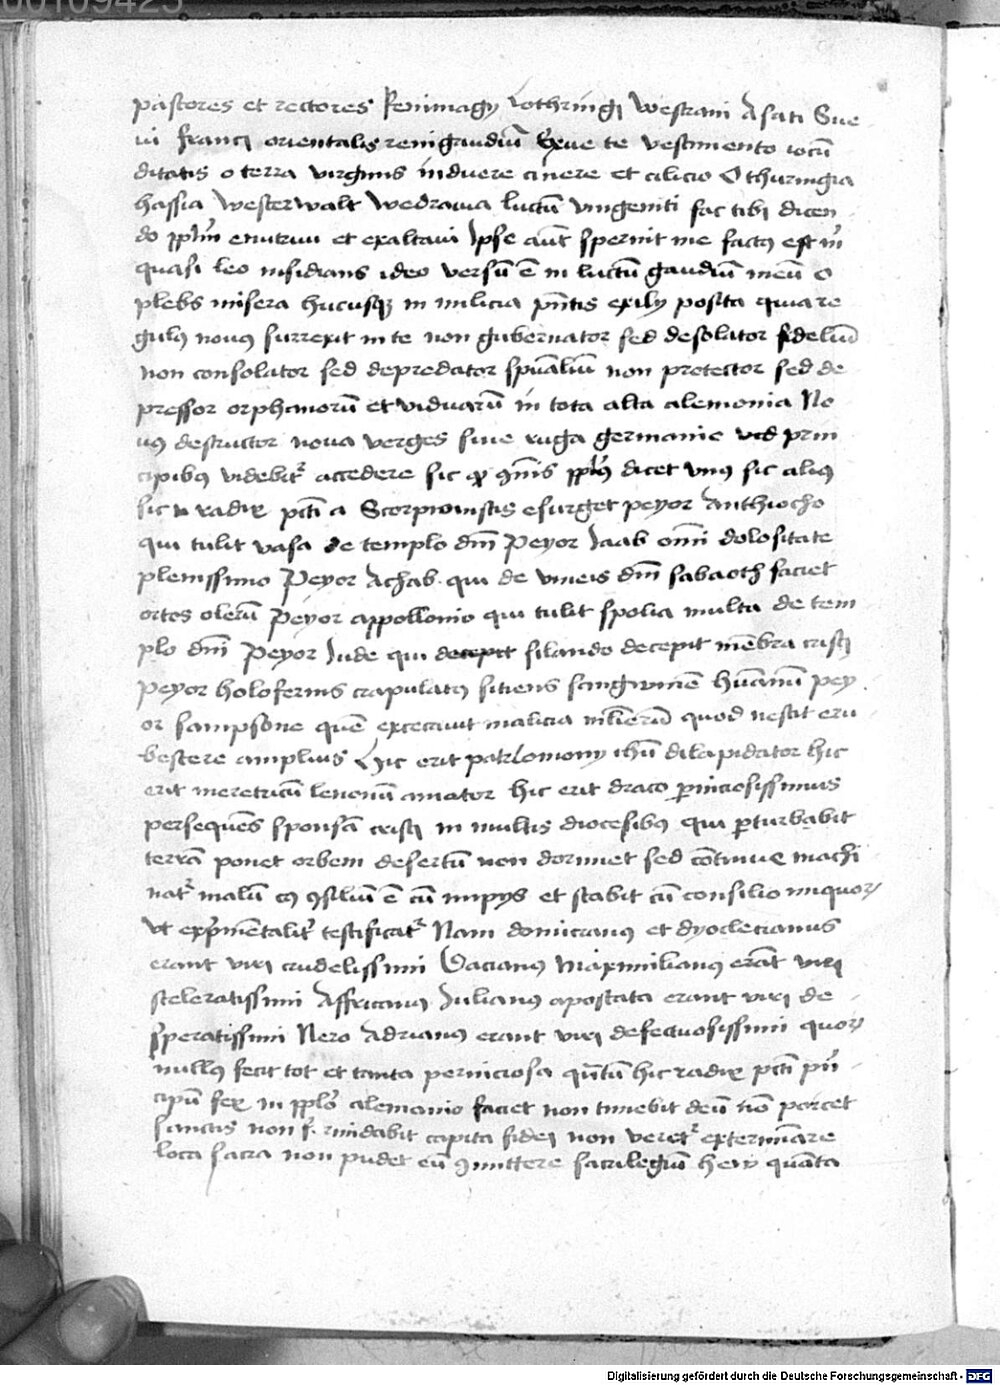 00109425
pastores et rectores Renimagy Lothringi Westrani Asati Sue
ui franci orientalis renigaudiũ Exue te vestimento iocũ
ditatis o terra virginis induere cinere et cilicio O thuringia
hassia Westerwalt Wedravia luctũ vnigeniti fac tibi dicen
do pplm̃ enutriui et exaltaui Ipse aũt spernit me factꝯ est m̃
quasi leo insidians ideo versũ ẽ in luctũ gaudiũ meũ O
plebs misera hucusqꝫ in milicia pñtis exily posita quia re
gulꝯ nouꝯ surrexit in te non gubernator sed desolator fideliũ
non consolator sed depredator spũaliũ non protector sed de
pressor orphanorũ et viduarũ in tota alta alemonia No
uꝯ destructor noua verges siue ruga germanie vid prin
cipibꝯ videbit᷑ accedere sic ꝙ om̃is pplꝰ dicet vnꝯ sic aliꝯ
sic radix pcti a Scorpionistis exurget peyor Anthiocho
qui tulit vasa de templo dñi Peyor Iaab omni dolositate
plenissimo Peyor Achab qui de vineis dñi sabaoth faciet
ortos olerũ Peyor appollonio qui tulit spolia multa de tem
plo dñi Peyor Iude qui decepit silando decepit mẽbra cristi
Peyor holofernis crapulatꝯ sitiens sangwinẽ hũanũ pey
or sampsone quẽ excecauit malicia mlierũ quod nescit eru
bescere amplius Hic erit patrimony ihũ dilapidator hic
erit meretricũ lenonũ amator hic erit draco ꝑniciosissimus
persequẽs sponsã cristi in multis diocesibꝯ qui ꝑturbabit
terrã ponet orbem desertũ non dormiet sed cõtinue machi
nat᷑ malũ cꝯ ꝯsiliũ ẽ cũ impys et stabit cũ consilio iniquoꝝ
vt exꝑimentalit᷑ testificat᷑ Nam domicianꝯ et dyoclecianus
erant viri crudelissimi Dacianꝯ Maximilianꝯ erãt viri
sceleratissimi Affricanꝯ Iulianꝯ apostata erant viri de
speratissimi Nero Adrianꝯ erant viri defectuosissimi quoꝝ
nullꝯ fecit tot et tanta perniciosa quãtũ hic radix pcti pñ
cipũ fex in pplo alemanio faciet non timebit deũ nõ parcet
sanctis non capita fidei non veret᷑ extermĩare
loca sacra non pudet eũ ꝯmittere sacrilegiũ hew quãta
Digitalisierung gefördert durch die Deutsche Forschungsgemeinschaft - DFG